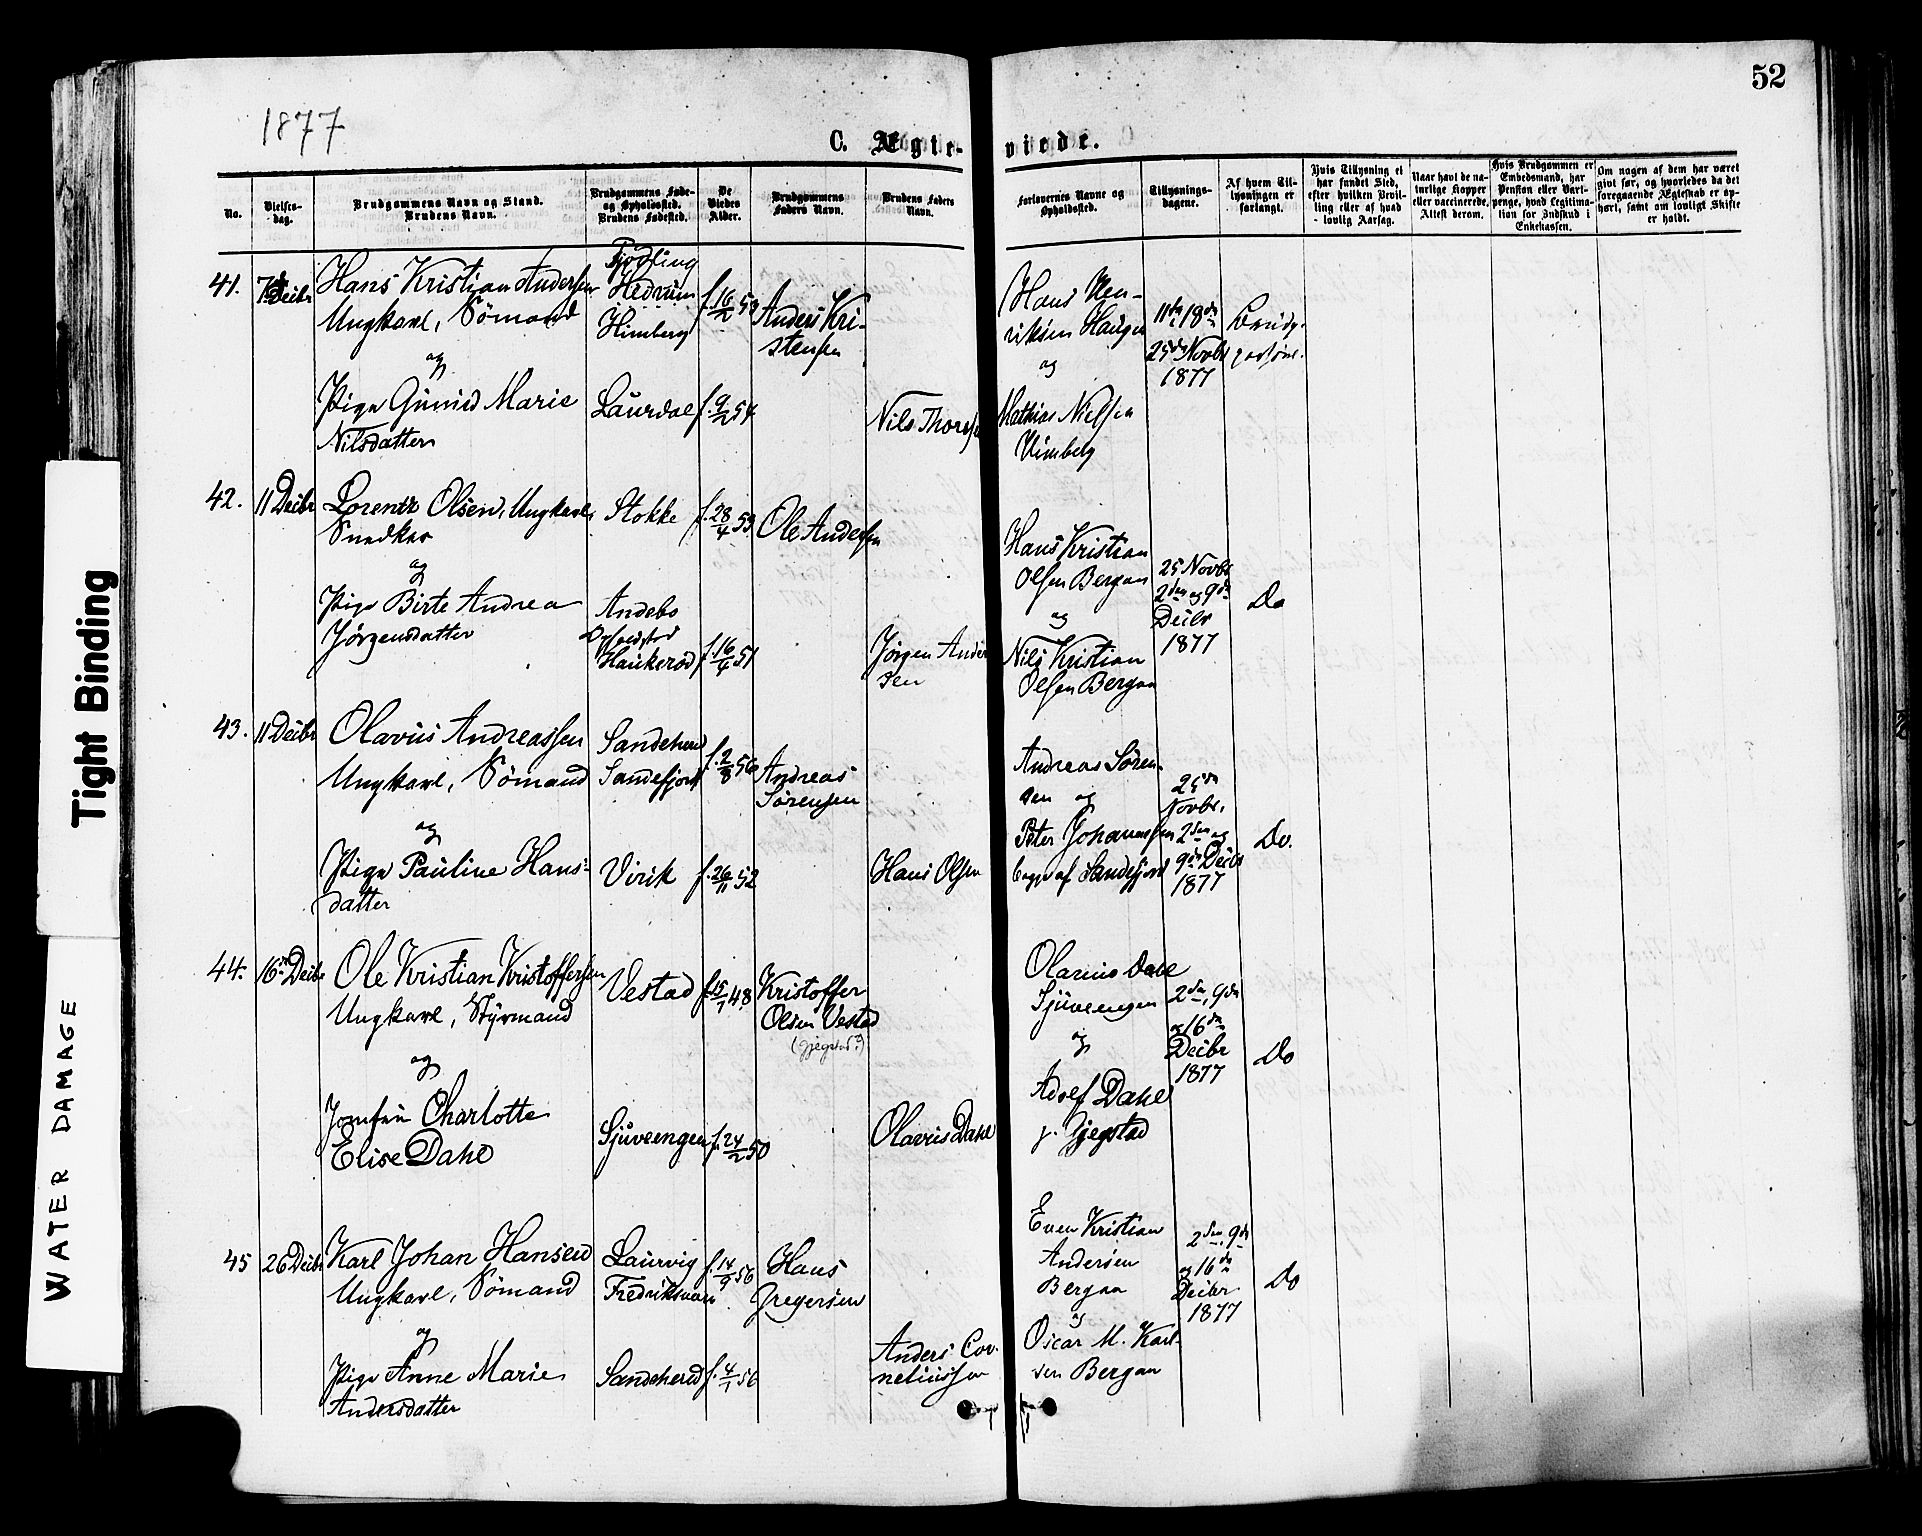 52
1877
C. Ægte-
viede.
No.
Vielses-
dag.
Brudgommens Navn og Stand.
Brudens Navn.
Brudgommens Føde-
og Opholdssted.
Brudens Fødested.
De
Viedes
Alder.
Brudgommens
Faders Navn.
Brudens Faders
Navn.
Forlovernes Navne og
Opholdssted.
Tillysnings-
dagene.
Af hvem Til-
lysningen er
forlangt.
Hvis Tillysning ei
har fundet Sted,
efter hvilken Bevil-
ling eller af hvad
lovlig Aarsag.
Naar havt de na-
turlige Kopper
eller vaccinerede.
Attest derom.
Hvis Brudgommen er
Embedsmand, har
Pension eller Vart-
penge, hvad Legitima-
tion for Indskud i
Enkekassen.
Om nogen af dem har været
gift før, og hvorledes da det
foregaaende Ægteskab er op-
hørt, samt om lovligt Skifte
er holdt.
41.
7 Decbr
Hans Kristian Andersen
Ungkarl, Sömand
og
Pige Gunild Marie
Nilsdatter
Fjødling
Hedrum
Himberg
Laurdal
f. 16/2 53
f. 9/2 54
Anders Kri-
stensen
Nils Thorsen
Hans Hen-
riksen Haugen
og
Mathias Nielsen
Himberg
11te 18de
25de Novbr
1877
Brudgommen
42.
11 Decbr
Lorentz Olsen, Ungkarl,
Snedker
og
Pige Birte Andrea
Jörgensdatter
Stokke
Andebo
Opholdsted
Haukerød
f. 28/4 53
f. 16/4 51
Ole Andersen
Jörgen Ander
sen
Hans Kristian
Olsen Bergan
og
Nils Kristian
Olsen Bergan
25 Novbr
2den og 9de
Decbr
1877
Do
43.
11 Decbr
Olavus Andreassen
Ungkarl, Sömand
og
Pige Pauline Hans-
datter
Sandeherred
Sandefjord
Virik
f. 2/8 56
f. 26/11 52
Andreas
Sørensen
Hans Olsen
Andreas Søren-
sen og
Peter Johannessen
begge af Sandefjord
25de
Novbr,
2den og
9de Decbr
1877
Do.
44.
16de Decbr
Ole Kristian Kristoffersen
Ungkarl, Styrmand
og
Jomfru Charlotte
Elise Dahl
Vestad
Sjuveengen
f. 15/7 48
f. 24/2 50
Kristoffer
Olsen Vestad
(Gjegstad?)
Olavus Dahl
Olavus Dahl
Sjuveengen
og
Adolf Dahl
p. Gjegstad
2den, 9de
og 16de
Decbr
1877
Do
45
26 Decbr
Karl Johan Hansen
Ungkarl, Sömand
og
Pige Anne Marie
Andersdatter
Laurvig
Fredriksværn
Sandeherred
f. 14/9 56
f. 4/1 56
Hans
Gregersen
Anders Cor-
neliussen
Even Kristian
Andersen
Bergan
og
Oscar M. Karl-
sen Bergan
2den, 9de
og 16de
Decbr
1877
Do
Tight Binding
WATER DAMAGE